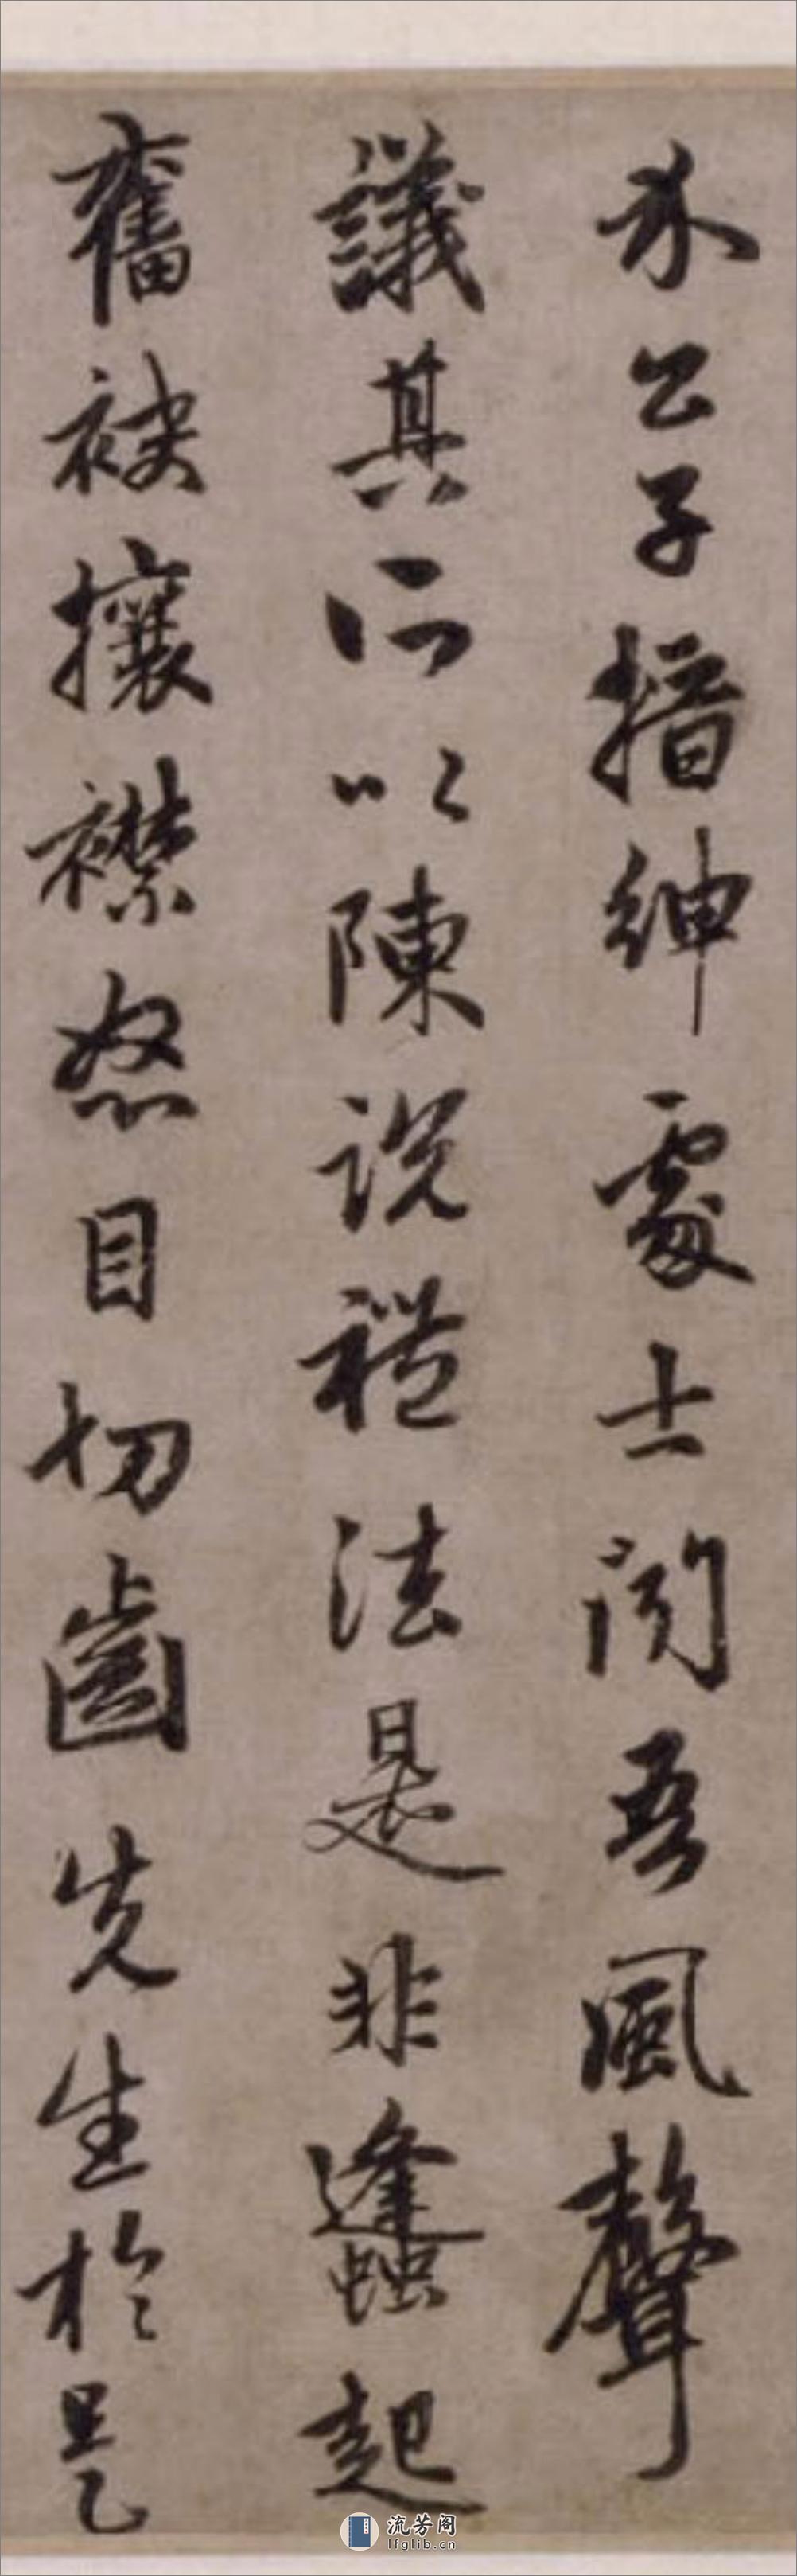 介公子搢紳處士聞吾風聲
議其所以陳說禮法是非蠭起
奮袂攘襟怒目切齒先生於是
流芳阁
lfglib.cn